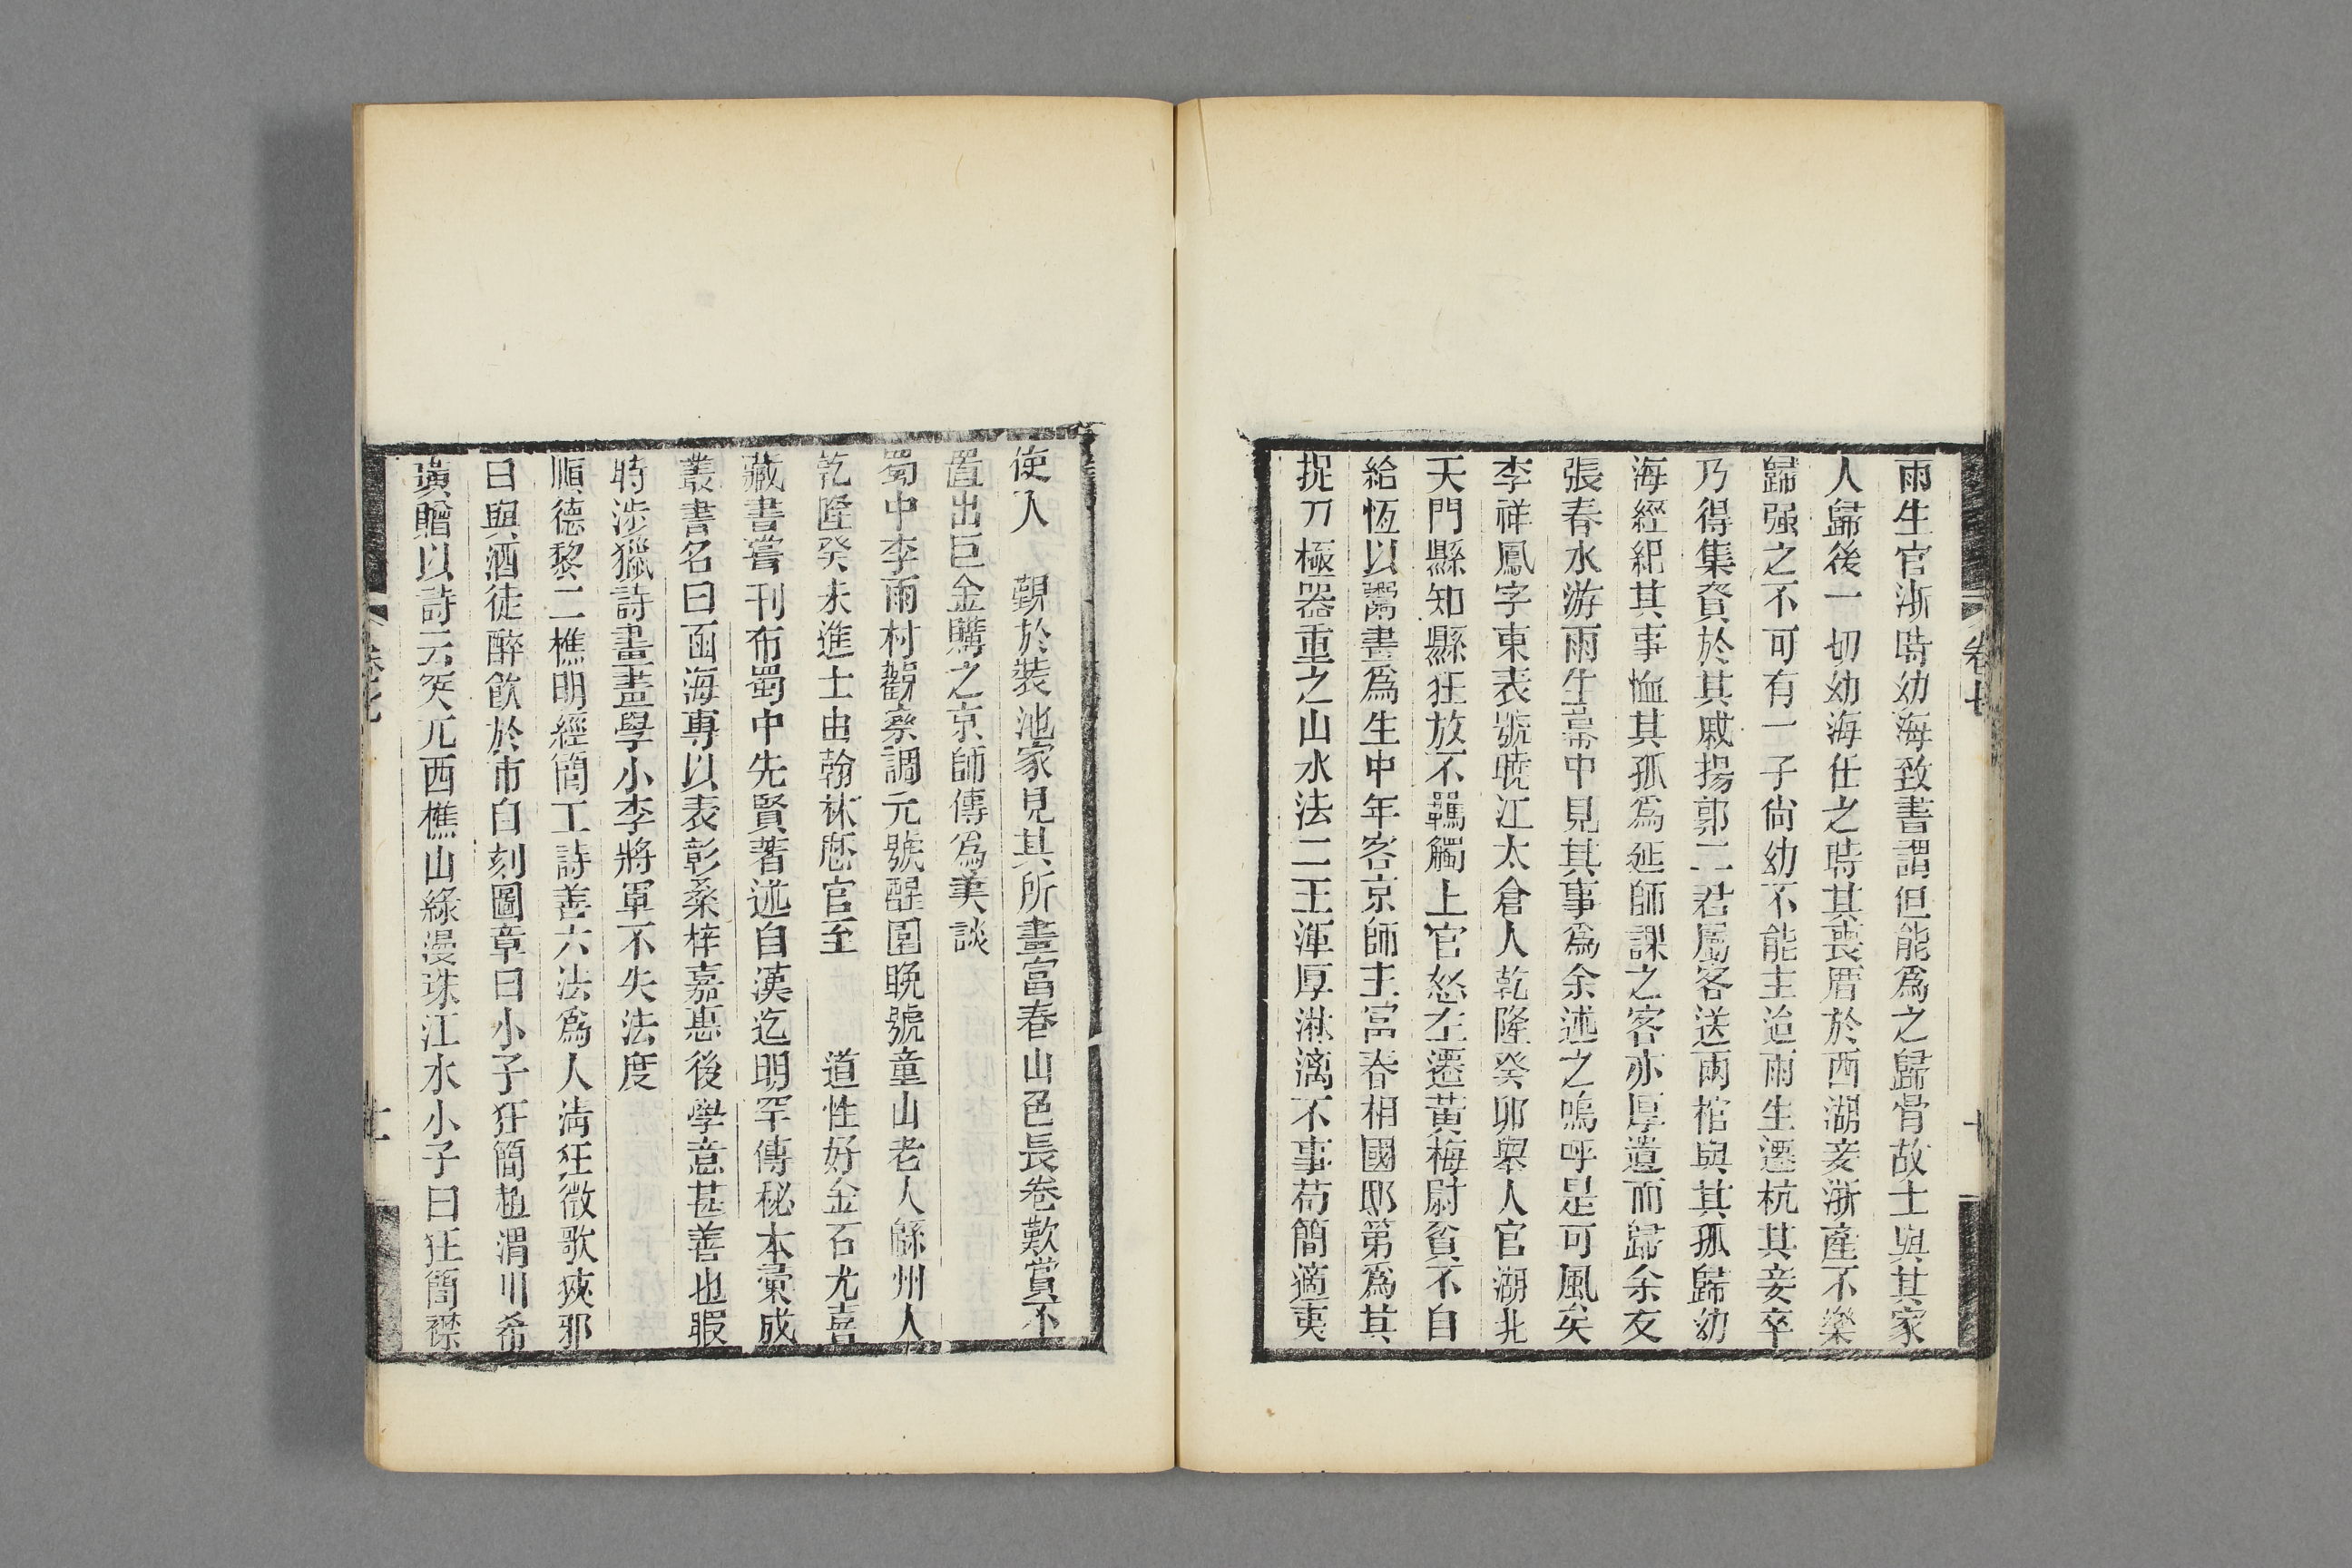 雨生官浙時幼海致書謂但能爲之歸骨故土與其家
人歸後一切幼海任之時其喪厝於西湖妾浙產不樂
歸强之不可有一子尙幼不能主迨雨生遷杭其妾卒
乃得集資於其戚揚郭二君屬客送兩棺與其孤歸幼
海經紀其事恤其孤爲延師課之客亦厚遺而歸余友
張春水游雨生幕中見其事爲余述之嗚呼是可風矣
李祥鳳字東表號曉江太倉人乾隆癸卯舉人官湖北
天門縣知縣狂放不羈觸上官怒左遷黃梅尉貧不自
給恆以鬻畫爲生中年客京師主富春相國邸第爲其
捉刀極器重之山水法二王渾厚淋漓不事苟簡適夷
使入 覲於裝池家見其所畫富春山色長卷歎賞不
置出巨金購之京師傳爲美談
蜀中李雨村觀察調元號醒園晚號童山老人緜州人
乾隆癸未進士由翰林歷官至 道性好金石尤喜
藏書嘗刊布蜀中先賢著述自漢迄明罕傳秘本彙成
叢書名曰函海專以表彰桑梓嘉惠後學意甚善也暇
時涉獵詩畫畫學小李將軍不失法度
順德黎二樵明經簡工詩善六法爲人淸狂徵歌狹邪
日與酒徒醉飮於市自刻圖章曰小子狂簡楂渭川希
璜贈以詩云突兀西樵山綠漫珠江水小子曰狂簡襟
卷七
十
卷七
十一